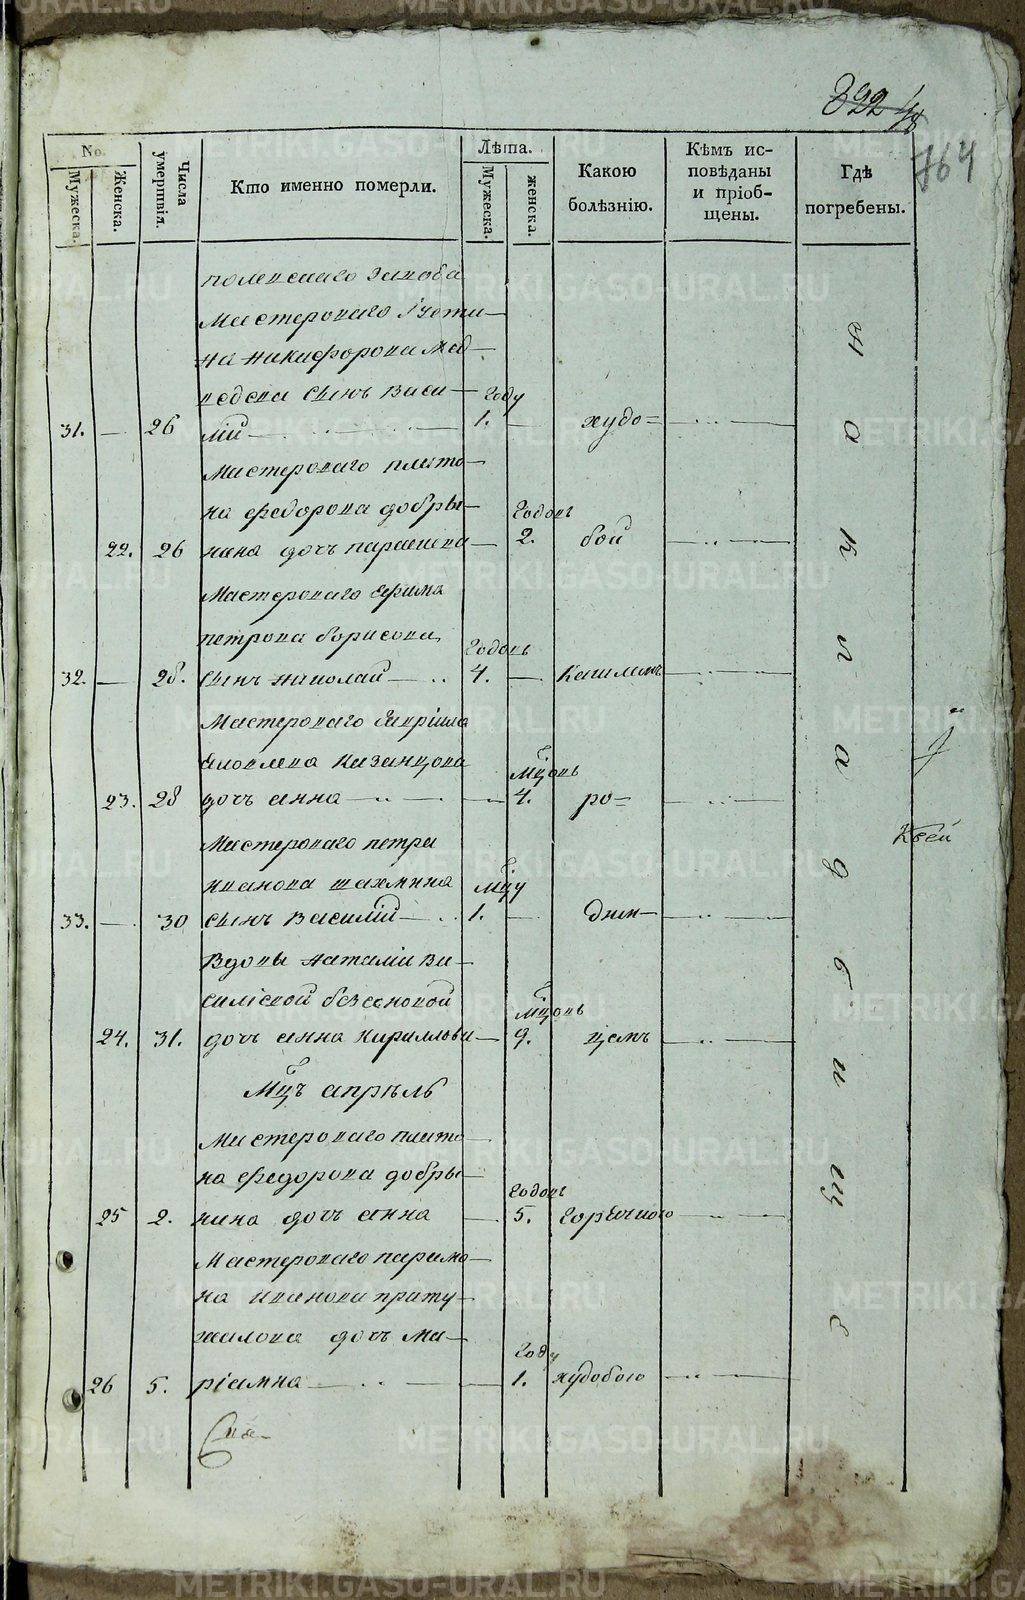 822
764
No.
Мужеска.
Женска.
Числа умертвія.
Кто именно померли.
Лѣта.
Мужеска.
женска.
Какою болѣзнію.
Кѣмъ исповѣданы и пріобщены.
Гдѣ погребены.
полевскаго завода
Мастероваго Устина Никифорова Медведева сынъ Васи-
31. — 26 лій — Году 1. — худо=
Мастероваго плато-
на федорова добры- Годовъ
22. 26 нина дочь парасковa — 2. бой
Мастероваго Ефима
петрова борисова, Годовъ
32. — 28. сынъ николай — 4. — Кашлемъ
Мастероваго Гавріила
Яковлева Казанцова Мцовъ
23. 28 дочь анна — 4. ро=
Мастероваго петра
иванова шахмина Мцу
33. — 30 сынъ Василій — 1. — дим—
Вдовы наталіи Ва-
силіевой безсоновой Мцовъ
24. 31. дочь анна Кириллова — 9. цемъ
Мцъ апрѣль
Мастероваго плато-
на федорова добры- Годовъ
25 2. нина дочь анна — 5. горячкого
Мастероваго парамо-
на иванова приту-
жалова дочь Ма- Году
26 5. ріамна — 1. худобою
на кладбище